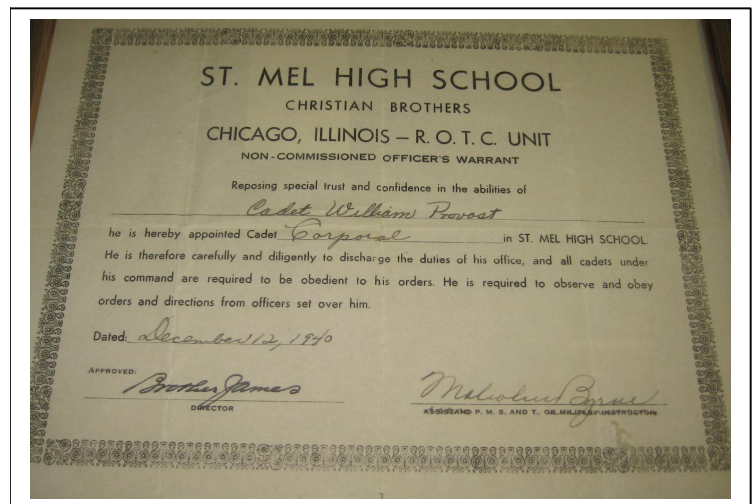 ST. MEL HIGH SCHOOL
CHRISTIAN BROTHERS
CHICAGO, ILLINOIS – R. O. T. C. UNIT
NON-COMMISSIONED OFFICER'S WARRANT
Reposing special trust and confidence in the abilities of
Cadet William Provost
he is hereby appointed Cadet Corporal in ST. MEL HIGH SCHOOL.
He is therefore carefully and diligently to discharge the duties of his office, and all cadets under
his command are required to be obedient to his orders. He is required to observe and obey
orders and directions from officers set over him.
Dated: December 12, 1940
APPROVED:
Brother James
Malcolm Byrne
DIRECTOR
ASSISTANT P. M. S. AND T., OR MILITARY INSTRUCTOR